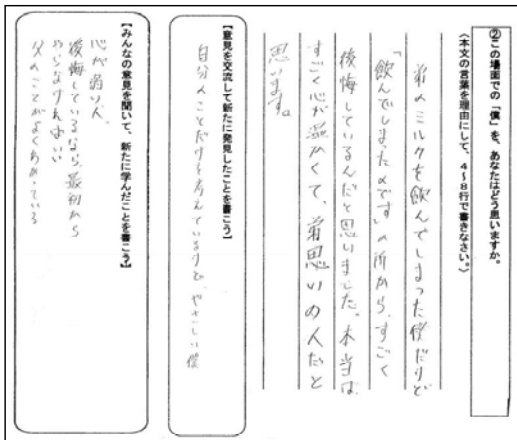 ②この場面での「僕」を、あなたはどう思いますか。
〈本文の言葉を理由にして、4～8行で書きなさい。〉
弟のミルクを飲んでしまった僕だけど
「飲んでしまったのです」の所から、すごく
後悔しているんだと思いました。本当は
すごく心が温かくて、弟思いの人だと
思います。
【意見を交流して新たに発見したことを書こう】
自分のことだけを考えているけど、やさしい僕
【みんなの意見を聞いて、新たに学んだことを書こう】
心が弱い人、
後悔しているなら、最初から
やらなければいい
父のことがよくわかっている